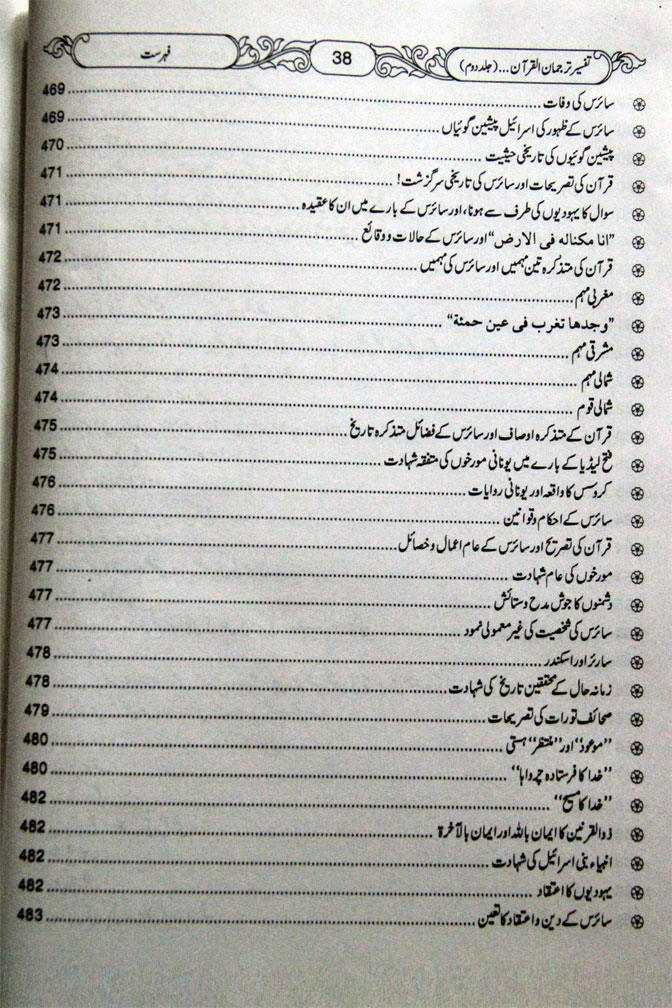 تفسیر ترجمان القرآن...(جلد دوم) 38 فہرست
سائرس کی وفات 469
سائرس کے ظہور کی اسرائیل پیشین گوئیاں 469
پیشین گوئیوں کی تاریخی حیثیت 470
قرآن کی تصریحات اور سائرس کی تاریخی سرگزشت! 471
سوال کا یہودیوں کی طرف سے ہونا، اور سائرس کے بارے میں ان کا عقیدہ 471
”انا مکنالہ فی الارض“ اور سائرس کے حالات و وقائع 471
قرآن کی متذکرہ تین مہمیں اور سائرس کی مہمیں 472
مغربی مہم 472
”وجدھا تغرب فی عین حمئة“ 473
مشرقی مہم 473
شمالی مہم 474
شمالی قوم 474
قرآن کے متذکرہ اوصاف اور سائرس کے فضائل متذکرہ تاریخ 475
فتح لیڈیا کے بارے میں یونانی مورخوں کی متفقہ شہادت 475
کروسس کا واقعہ اور یونانی روایات 476
سائرس کے احکام و قوانین 476
قرآن کی تصریح اور سائرس کے عام اعمال و خصائل 477
مورخوں کی عام شہادت 477
دشمنوں کا جوش مدح و ستائش 477
سائرس کی شخصیت کی غیر معمولی نمود 477
سارئز اور اسکندر 478
زمانہ حال کے محققین تاریخ کی شہادت 478
صحائف تورات کی تصریحات 479
”موعود“ اور ”منتظر“ ہستی 480
”خدا کا فرستادہ چرواہا“ 480
”خدا کا مسیح“ 482
ذوالقرنین کا ایمان باللہ اور ایمان بالآخرة 482
انبیاء بنی اسرائیل کی شہادت 482
یہودیوں کا اعتقاد 482
سائرس کے دین و اعتقاد کا تعین 483